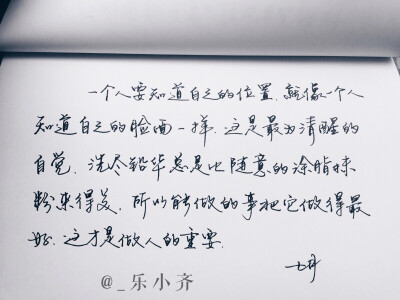 一个人要知道自己的位置，就像一个人
知道自己的脸面一样，这是最为清醒的
自觉，洗尽铅华总是比随意的涂脂抹
粉来得美，所以能做的事把它做得最
好，这才是做人的重要．
@_乐小齐